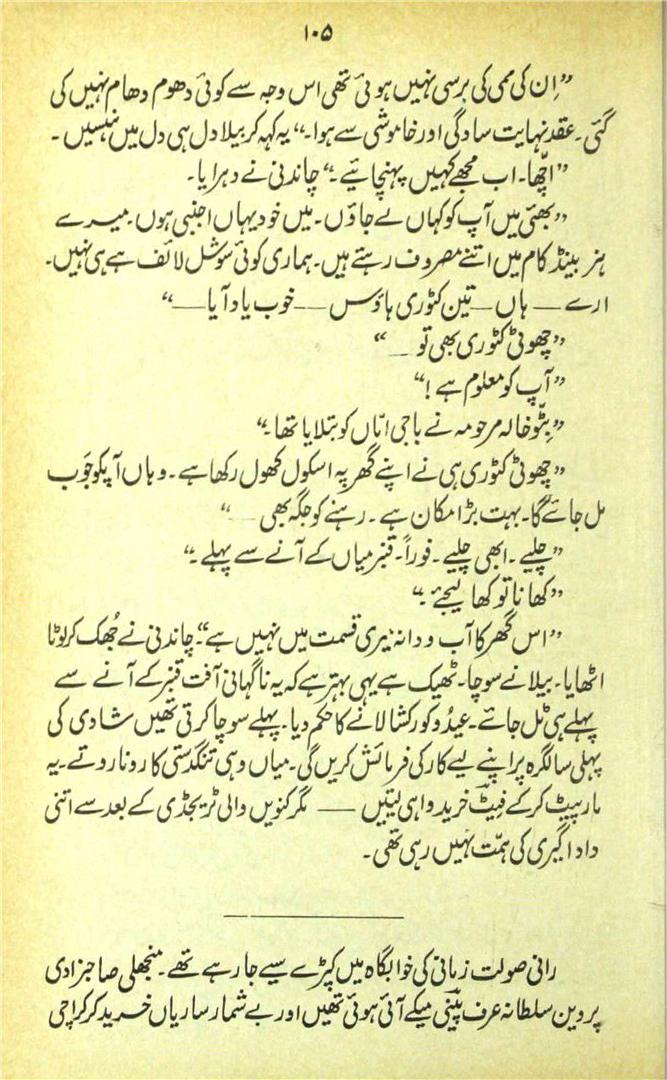 ۱۰۵
”اِن کی ممی کی برسی نہیں ہوئی تھی اس وجہ سے کوئی دھوم دھام نہیں کی
گئی۔ عقد نہایت سادگی اور خاموشی سے ہوا۔“ یہ کہہ کر بیلا دل ہی دل میں ہنسیں۔
”اچھا۔ اب مجھے کہیں پہنچائیے۔“ چاندنی نے دہرایا۔
”بھئی میں آپ کو کہاں لے جاؤں۔ میں خود یہاں اجنبی ہوں۔ میرے
ہزبینڈ کام میں اتنے مصروف رہتے ہیں۔ ہماری کوئی سوشل لائف ہے ہی نہیں۔
ارے — ہاں — تین کٹوری ہاؤس — خوب یاد آیا —“
”چھوٹی کٹوری بھی تو —“
”آپ کو معلوم ہے!“
”بٹّو خالہ مرحومہ نے باجی امّاں کو بتلایا تھا۔“
”چھوٹی کٹوری ہی نے اپنے گھر پہ اسکول کھول رکھا ہے۔ وہاں آپکو جَوب
مل جائے گا۔ بہت بڑا مکان ہے۔ رہنے کو جگہ بھی —“
”چلیے۔ ابھی چلیے۔ فوراً۔ قنبر میاں کے آنے سے پہلے۔“
”کھانا تو کھا لیجئے۔“
”اس گھر کا آب و دانہ میری قسمت میں نہیں ہے“۔ چاندنی نے جُھک کر لوٹا
اٹھایا۔ بیلا نے سوچا۔ ٹھیک ہے یہی بہتر ہے کہ یہ ناگہانی آفت قنبر کے آنے سے
پہلے ہی ٹل جائے۔ عیدُو کو رکشا لانے کا حکم دیا۔ پہلے سوچا کرتی تھیں شادی کی
پہلی سالگرہ پر اپنے لیے کار کی فرمائش کریں گی۔ میاں وہی تنگدستی کا رونا روتے۔ یہ
مار پیٹ کر کے فیٹ خرید واہی لیتیں — مگر کنویں والی ٹریجڈی کے بعد سے اتنی
دادا گیری کی ہمّت نہیں رہی تھی۔
رانی صولت زمانی کی خوابگاہ میں کپڑے سیے جا رہے تھے۔ منجھلی صاحبزادی
پروین سلطانہ عرف پینی میکے آئی ہوئی تھیں اور بے شمار ساریاں خرید کر کراچی